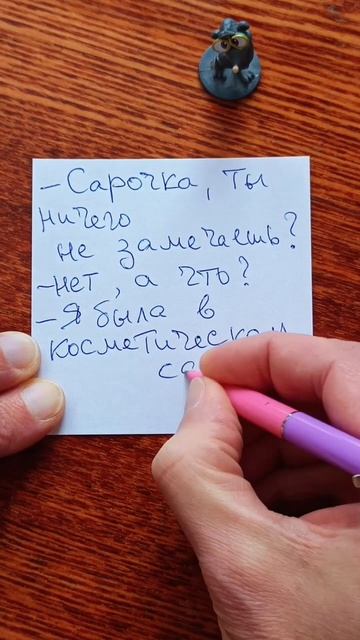 - Сарочка, ты
ничего
не замечаешь?
- нет, а что?
- Я была в
косметическом
са